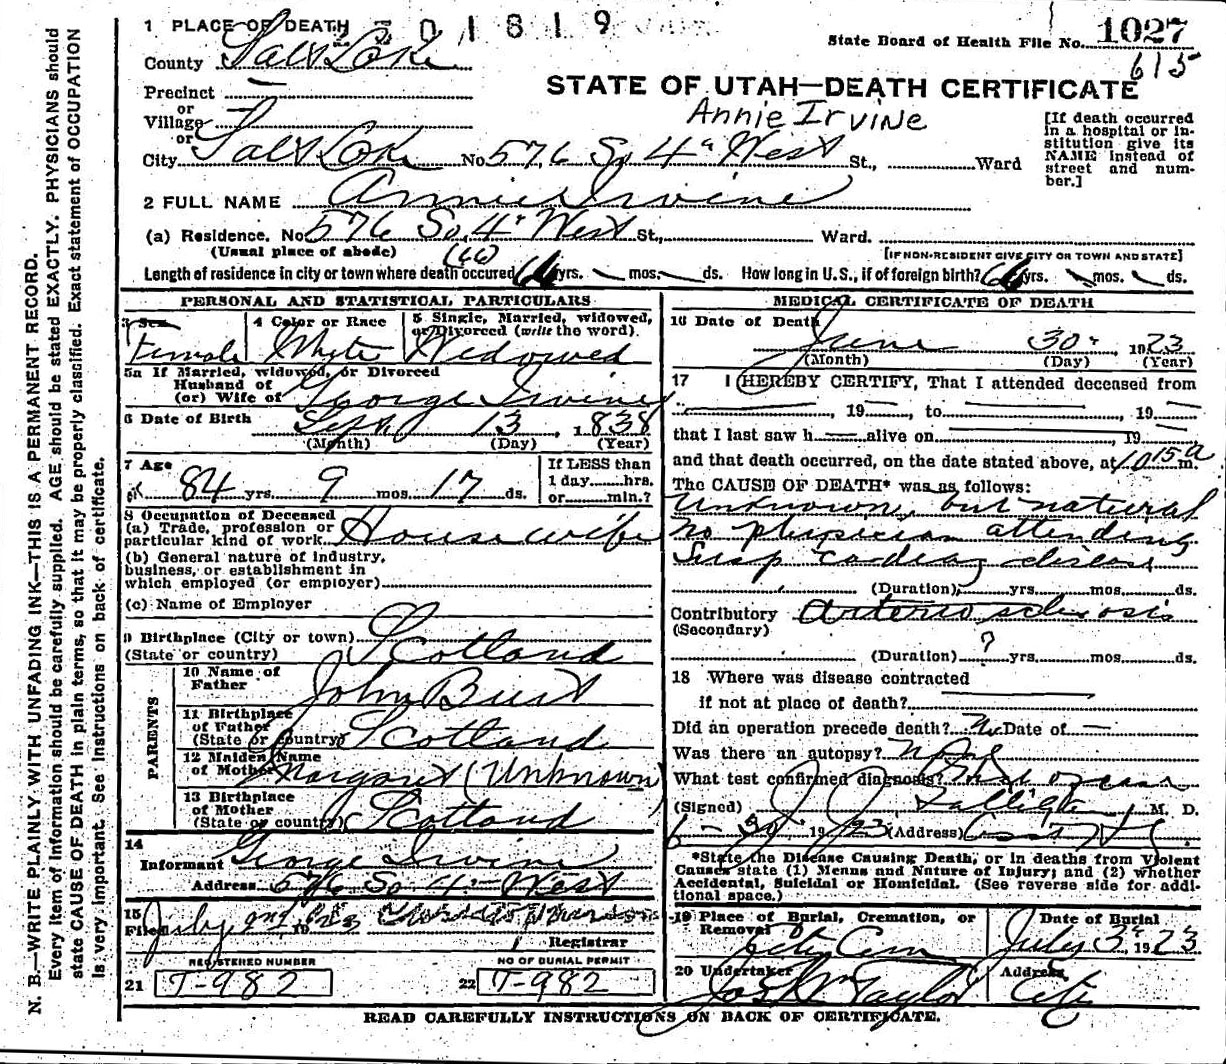 1 PLACE OF DEATH 301819
State Board of Health File No. 1027
615
County Salt Lake
STATE OF UTAH—DEATH CERTIFICATE
Precinct
or
Village
or
Annie Irvine
City Salt Lake No. 576 So 4" West St., Ward
[If death occurred in a hospital or institution give its NAME instead of street and number.]
2 FULL NAME Annie Irvine
(a) Residence. No. 576 So 4" West St., Ward.
(Usual place of abode) [IF NON-RESIDENT GIVE CITY OR TOWN AND STATE]
(66)
Length of residence in city or town where death occured 66 yrs. — mos. — ds. How long in U.S., if of foreign birth? 66 yrs. mos. ds.
PERSONAL AND STATISTICAL PARTICULARS
3 Sex
Female
4 Color or Race
White
5 Single, Married, widowed, or Divorced (write the word).
Widowed
5a If Married, widowed, or Divorced
Husband of
(or) Wife of George Irvine
6 Date of Birth Sept 13, 1838
(Month) (Day) (Year)
7 Age
84 yrs. 9 mos. 17 ds.
If LESS than
1 day......hrs.
or......min.?
8 Occupation of Deceased
(a) Trade, profession or
particular kind of work Housewife
(b) General nature of industry,
business, or establishment in
which employed (or employer)
(c) Name of Employer
9 Birthplace (City or town)
(State or country) Scotland
PARENTS
10 Name of
Father John Burt
11 Birthplace
of Father
(State or Country) Scotland
12 Maiden Name
of Mother Margaret (Unknown)
13 Birthplace
of Mother
(State or country) Scotland
14
Informant George Irvine
Address 576 So 4" West
15
Filed July 2nd 1923
Registrar
REGISTERED NUMBER
21 T-982
NO OF BURIAL PERMIT
22 T-982
MEDICAL CERTIFICATE OF DEATH
16 Date of Death
June 30, 1923
(Month) (Day) (Year)
17 I HEREBY CERTIFY, That I attended deceased from
—, 19—, to —, 19—
that I last saw h — alive on —, 19—
and that death occurred, on the date stated above, at 10 15 a m.
The CAUSE OF DEATH* was as follows:
Unknown, but natural
no physician attending
Susp cardiac disease
(Duration) yrs. mos. ds.
Contributory Arterio sclerosis
(Secondary)
(Duration) ? yrs. mos. ds.
18 Where was disease contracted
if not at place of death?
Did an operation precede death? No Date of —
Was there an autopsy?
What test confirmed diagnosis?
(Signed) J J Galligan M. D.
6-30 1923 (Address)
*State the Disease Causing Death, or in deaths from Violent
Causes state (1) Means and Nature of Injury; and (2) whether
Accidental, Suicidal or Homicidal. (See reverse side for additional space.)
19 Place of Burial, Cremation, or
Removal City Cem
Date of Burial
July 3" 1923
20 Undertaker
Jos Wm Taylor
Address
City
READ CAREFULLY INSTRUCTIONS ON BACK OF CERTIFICATE.
N. B.—WRITE PLAINLY WITH UNFADING INK—THIS IS A PERMANENT RECORD.
Every item of information should be carefully supplied. AGE should be stated EXACTLY. PHYSICIANS should
state CAUSE OF DEATH in plain terms, so that it may be properly classified. Exact statement of OCCUPATION
is very important. See instructions on back of certificate.